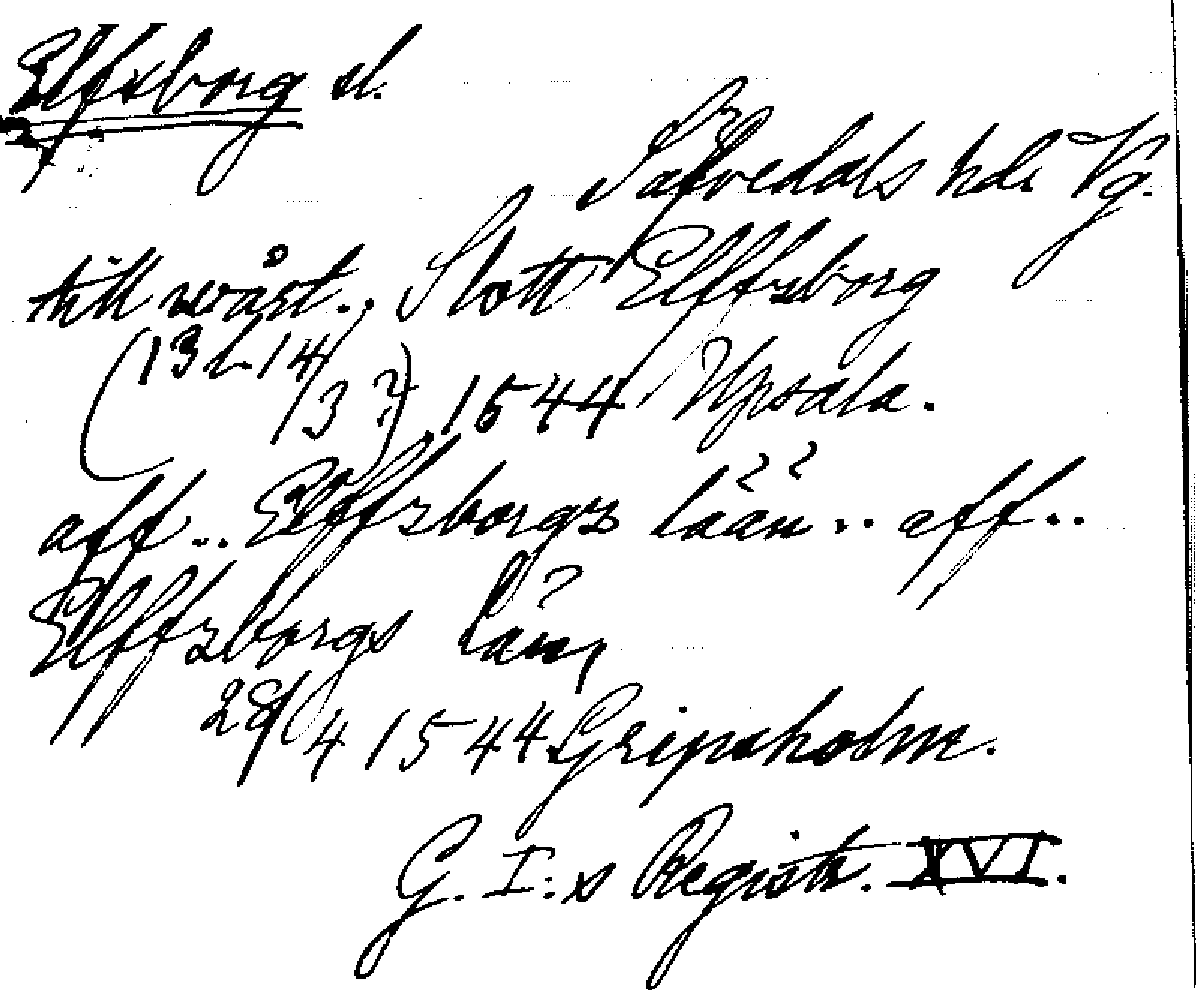 Elfsborg sl.
Säfvedals hd. Vg.
till wårt.. Slott Elffzborg
(13 l. 14/3?) 1544 Upsala.
aff.. Elffzborgz lään.. aff..
Elffzborgs län,
28/4 1544 Gripsholm.
G. I:s Registr. XVI.